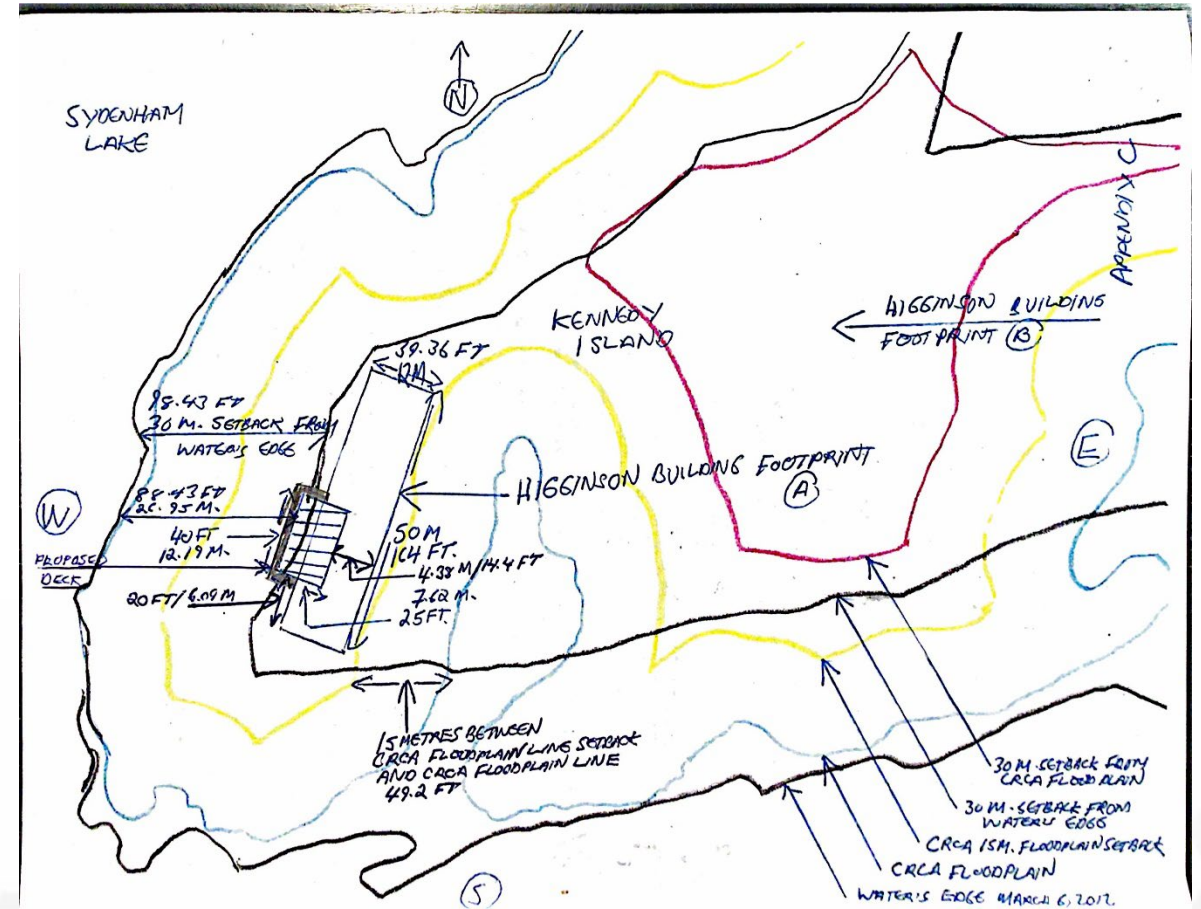 SYDENHAM
LAKE
N
APPENDIX C
KENNEDY
ISLAND
HIGGINSON BUILDING
FOOTPRINT B
39.36 FT
12M.
98.43 FT
30 M. SETBACK FROM
WATER'S EDGE
E
HIGGINSON BUILDING FOOTPRINT
A
W
88.43 FT
26.95 M.
40 FT
12.19 M.
PROPOSED
DECK
20 FT/6.09 M
50 M
164 FT.
4.38 M/14.4 FT
7.62 M.
25 FT.
15 METRES BETWEEN
CRCA FLOODPLAIN LINE SETBACK
AND CRCA FLOODPLAIN LINE
49.2 FT
30 M. SETBACK FROM
CRCA FLOOD PLAIN
30 M. SETBACK FROM
WATER'S EDGE
CRCA 15M. FLOODPLAIN SETBACK
CRCA FLOODPLAIN
WATER'S EDGE MARCH 6, 2012
S